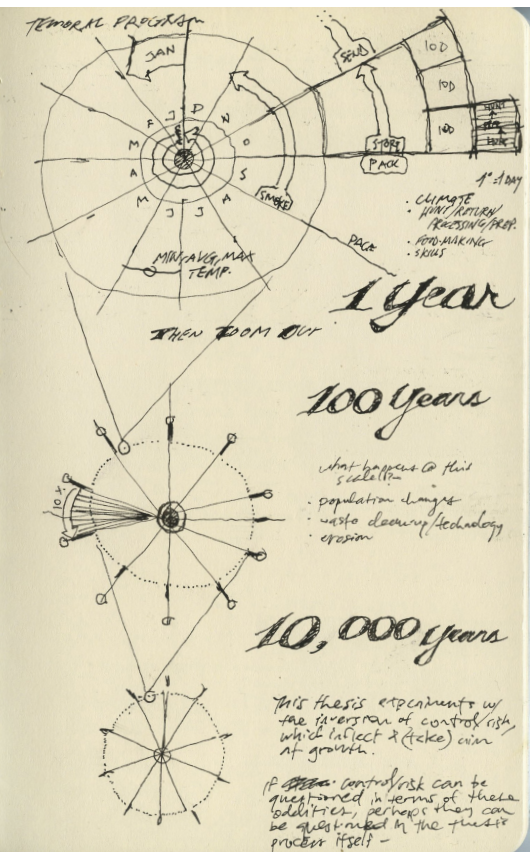 TEMORAL PROGRAM
JAN
SEND
10D
10D
10D
STORE
PACK
SMOKE
J
D
N
O
S
A
J
J
M
A
M
F
1° = 1 DAY
· CLIMATE
· HUNT/RETURN/
PROCESSING/PREP.
· FOOD-MAKING
· SKILLS
MIN, AVG, MAX
TEMP.
1 Year
THEN ZOOM OUT
100 Years
10 Y.
what happens @ this
scale!?~
· population changes
· waste cleanup/technology
· erosion
10,000 years
This thesis experiments w/
the inversion of control/risk,
which inflect & (take) aim
at growth.
If control/risk can be
questioned in terms of these
oddities, perhaps they can
be questioned in the thesis
process itself –